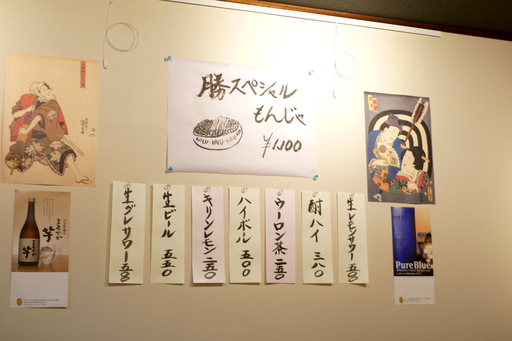 勝スペシャル
もんじゃ
¥1,100
生レモンサワー 五五〇
酎ハイ 三八〇
ウーロン茶 二五〇
ハイボール 五〇〇
キリンレモン 二五〇
生ビール 五五〇
生グレサワー 五五〇
Pure Blue